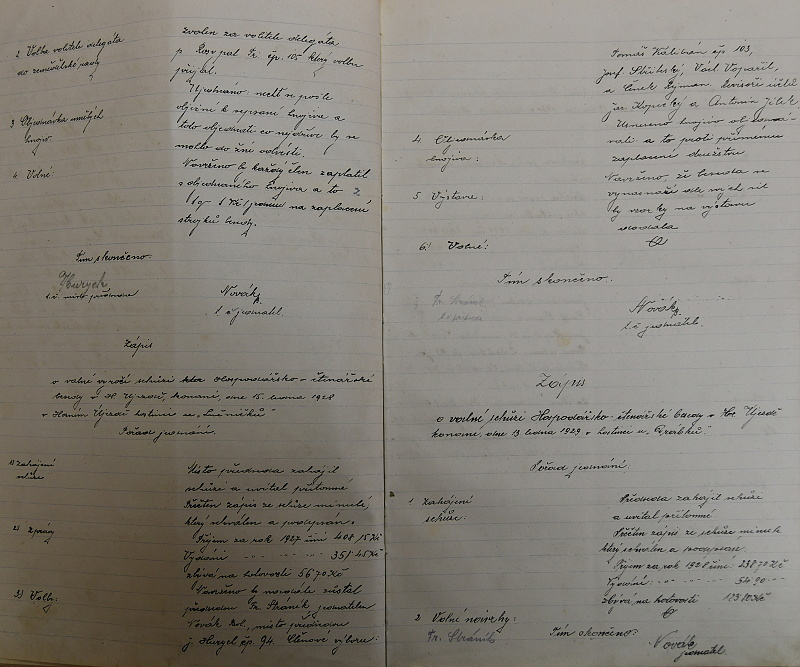 2 Volba volitele delegáta
do zemědělské rady
zvolen za volitele delegáta
p Rozpal Fr. čp. 105 který volbu
přijal.
3 Objednávka umělých
hnojiv.
Ujednáno, nechť se pošle
oběžník k sepsání hnojiva a
toto objednati co nejdříve by se
mohlo do žní odvésti.
4. Volné:
Navrženo by každý člen zaplatil
z objednaného hnojiva a to z
1 q 1 Kč na zaplacení
strojků besedy.
Tím skončeno.
Hurych
t.č. místo předseda
Novák
t č jednatel.
Zápis
o valné výroční schůzi Hospodářsko-čtenářské
besedy v H. Újezdě, konané, dne 15. ledna 1928
v Horním Újezdě hostinci u
Pořad jednání.
1) Zahájení
schůze
Místo předseda zahájil
schůzi a uvítal přítomné
Přečten zápis ze schůze minulé,
který schválen a podepsán.
2) Zprávy
Příjem za rok 1927 činí 408,15 Kč
Vydání - - - - - 351,45 Kč
zbývá na hotovosti 56.70 Kč
3) Volby:
Navrženo by nadále zůstal
předsedou Fr. Straník, jednatelem
Novák Bol., místo předsedou
j. Hurych čp. 94. Členové výboru:
Tomáš čp 103,
Josef Václ.
a Čeněk Ryman. Revisoři účtů
Kopecký a Antonín Jílek
4. Objednávka
hnojiva:
Usneseno hnojivo objednávati
a to proti přímému
zaplacení družstvu
5 Výstava:
Navrženo, že beseda se
vynasnaží dle svých sil
by vzorky na výstavu
dodala
6.) Volné:
Tím skončeno.
Fr. Straník
t č předseda
Novák
t. č jednatel.
Zápis
o valné schůzi Hospodářsko-čtenářské besedy v Hor. Újezdě
konané, dne 13 ledna 1929 v hostinci u
Pořad jednání.
1 Zahájení
schůze:
Předseda zahájil schůzi
a uvítal přítomné
Přečten zápis ze schůze minulé
který schválen a podepsán.
Příjem za rok 1928 činí: 238.70 Kč
Vydání: - - - - 54.90 -
zbývá na hotovosti 183.80 Kč
2 Volné návrhy:
Fr. Straník
Tím skončeno:
Novák
jednatel